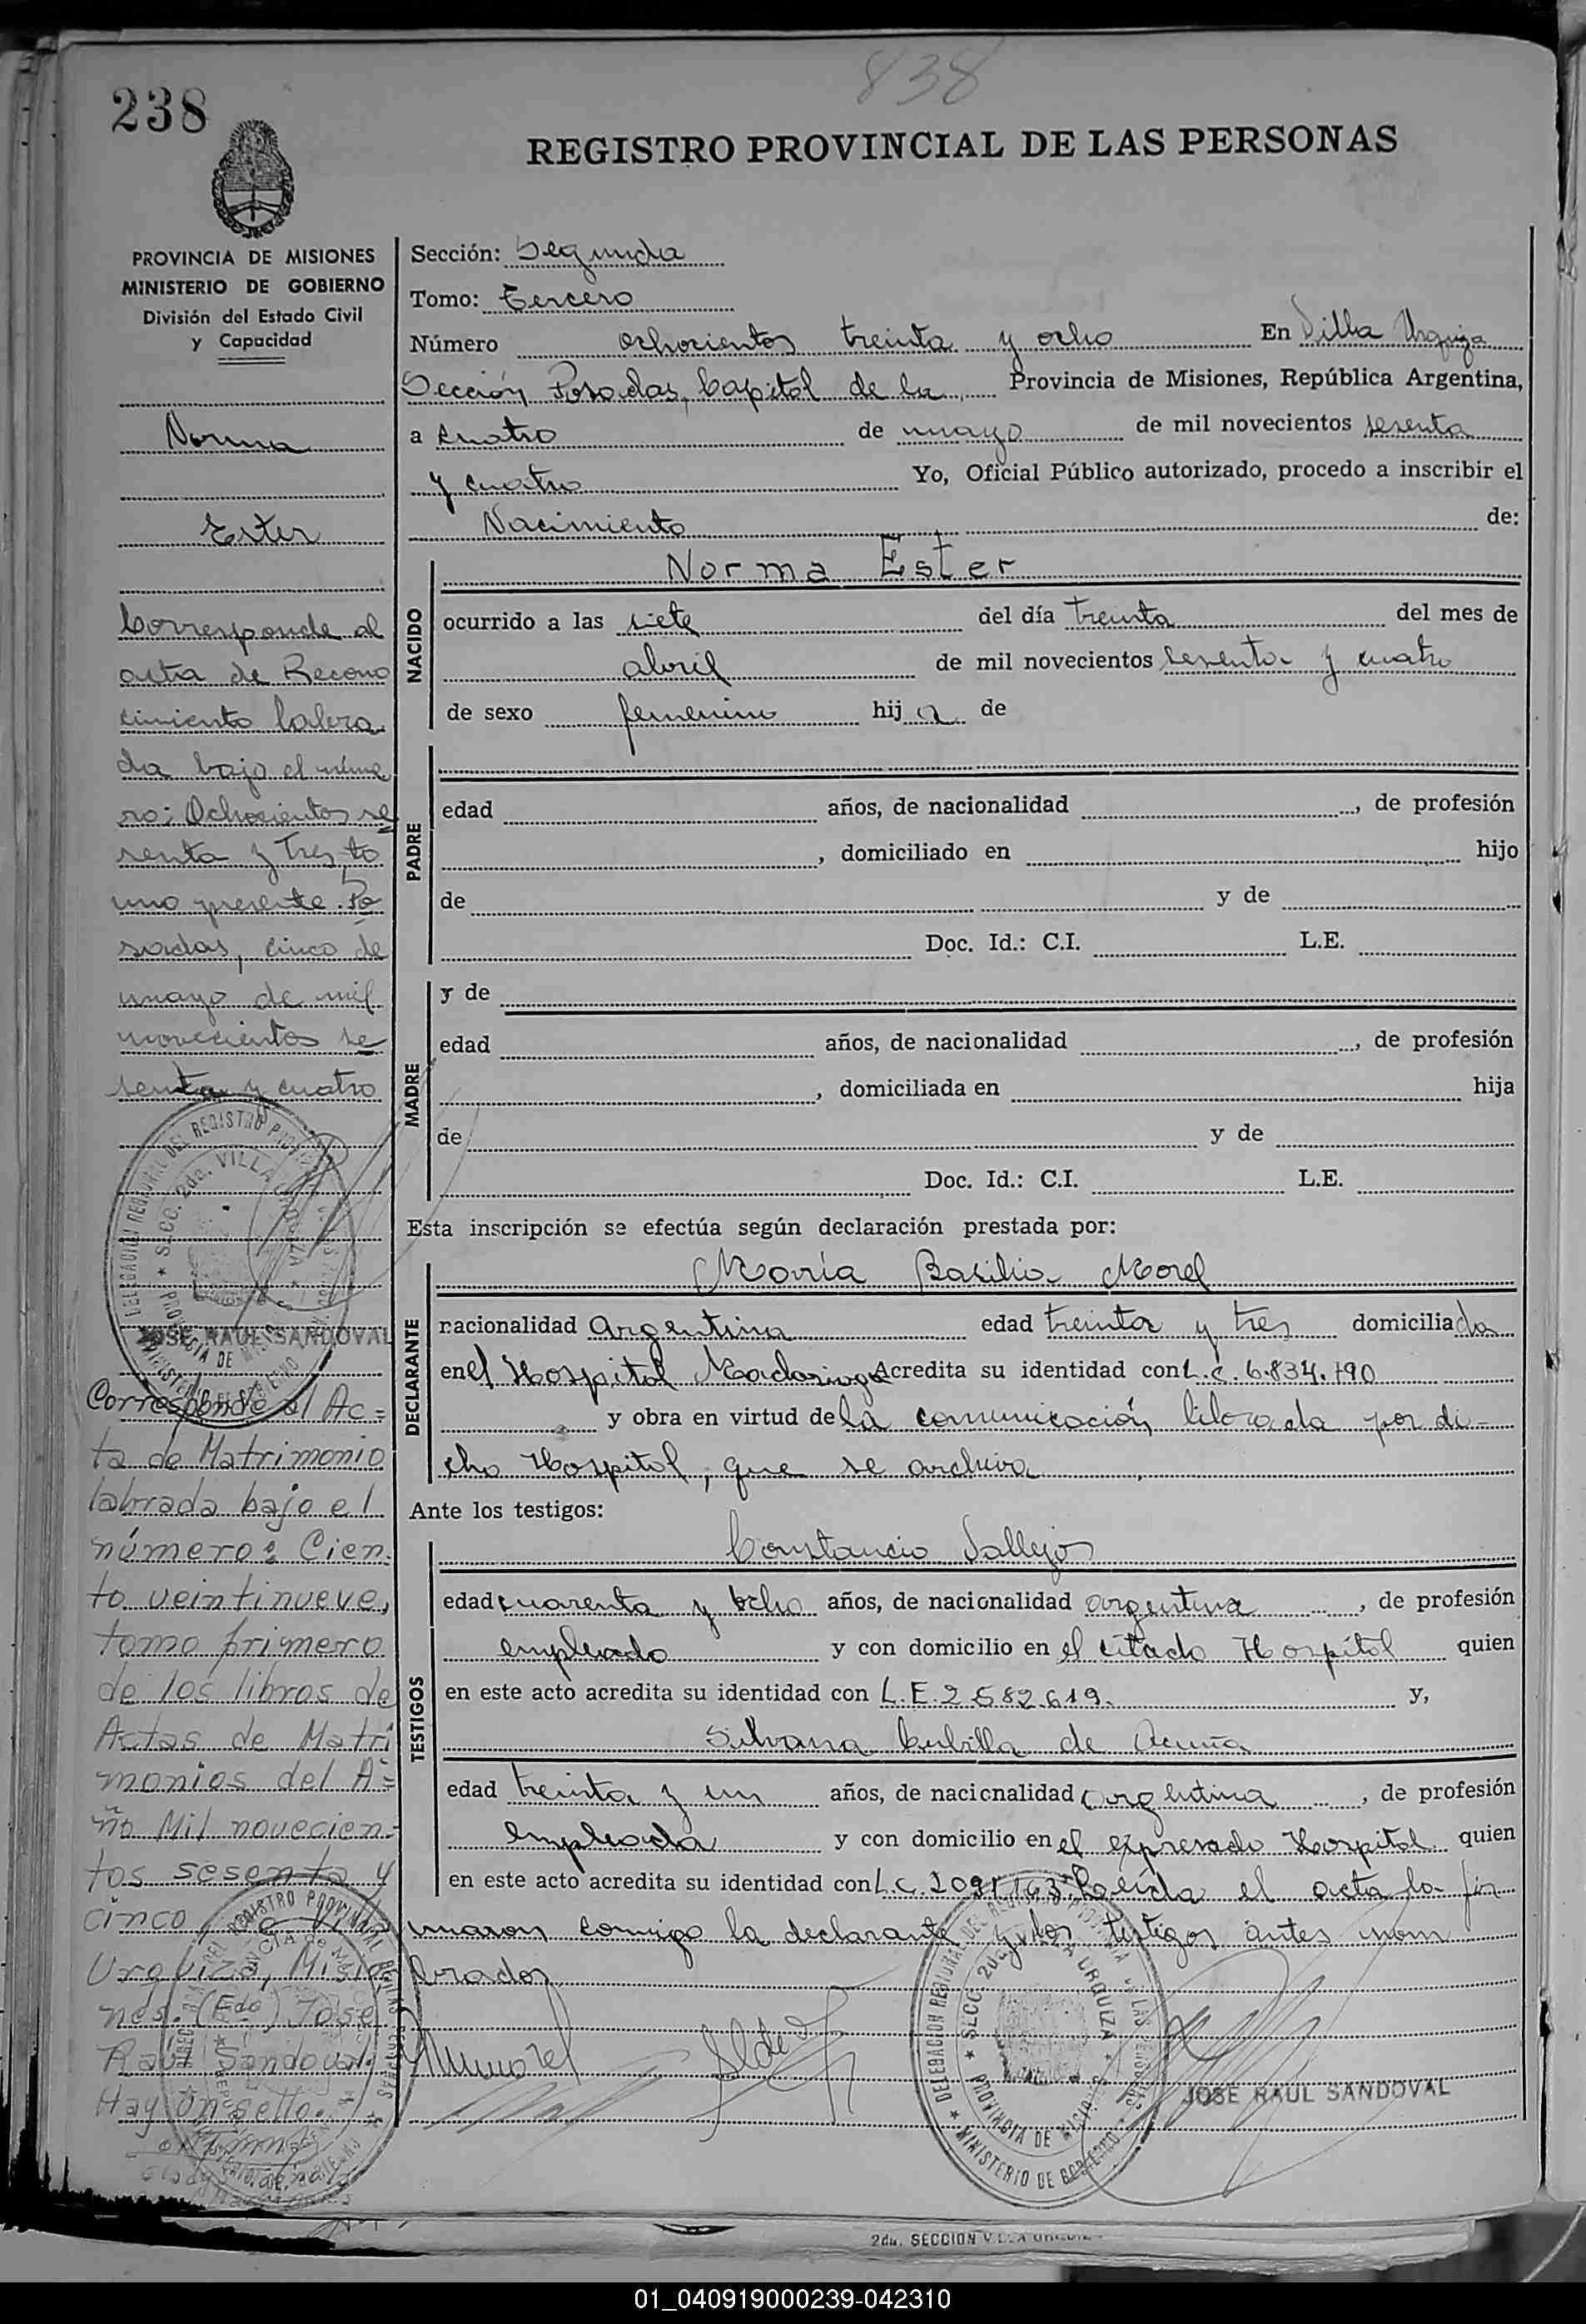 838
238
REGISTRO PROVINCIAL DE LAS PERSONAS
PROVINCIA DE MISIONES
MINISTERIO DE GOBIERNO
División del Estado Civil
y Capacidad
Norma
Ester
Corresponde al
acta de Recono
cimiento labra
da bajo el núme
ro: Ochocientos se
senta y tres to
mo presente. Po
sadas, cinco de
mayo de mil
novecientos se
senta y cuatro
DELEGACION REGIONAL DEL REGISTRO PROVINCIAL DE LAS PERSONAS
SECC. 2da. VILLA URQUIZA
PROVINCIA DE MISIONES
MINISTERIO DE GOBIERNO
JOSE RAUL SANDOVAL
Corresponde al Ac=
ta de Matrimonio
labrada bajo el
número: Cien.
to veintinueve,
tomo primero
de los libros de
Actas de Matri
monios del A=
ño Mil novecien-
tos sesenta y
cinco
Urquiza, Misio
nes. (Fdo) José
Raúl Sandoval.
Hay un sello.
Sección: Segunda
Tomo: Tercero
Número ochocientos treinta y ocho En Villa Urquiza
Sección Posadas, Capital de la Provincia de Misiones, República Argentina,
a cuatro de mayo de mil novecientos sesenta
y cuatro Yo, Oficial Público autorizado, procedo a inscribir el
Nacimiento de:
NACIDO
Norma Ester
ocurrido a las siete del día treinta del mes de
abril de mil novecientos sesenta y cuatro
de sexo femenino hij a de
PADRE
edad años, de nacionalidad , de profesión
, domiciliado en hijo
de y de
Doc. Id.: C.I. L.E.
MADRE
y de
edad años, de nacionalidad , de profesión
, domiciliada en hija
de y de
Doc. Id.: C.I. L.E.
Esta inscripción se efectúa según declaración prestada por:
DECLARANTE
María Basilia Morel
nacionalidad Argentina edad treinta y tres domiciliada
en el Hospital Madariaga Acredita su identidad con L.C. 6.834.190
y obra en virtud de la comunicación librada por di-
cho Hospital, que se archiva
Ante los testigos:
TESTIGOS
Constancio Vallejos
edad cuarenta y ocho años, de nacionalidad argentina , de profesión
empleado y con domicilio en el citado Hospital quien
en este acto acredita su identidad con L.E. 2.582.619. y,
Silvana Cubilla de Acuña
edad treinta y un años, de nacionalidad argentina , de profesión
empleada y con domicilio en el expresado Hospital quien
en este acto acredita su identidad con L.C. Leída el acta la fir
maron comigo la declarante y los testigos antes nom
brados
DELEGACION REGIONAL DEL REGISTRO PROVINCIAL DE LAS PERSONAS
SECC. 2da. VILLA URQUIZA
PROVINCIA DE MISIONES
MINISTERIO DE GOBIERNO
JOSE RAUL SANDOVAL
2da. SECCION VILLA URQUIZA
01_040919000239-042310